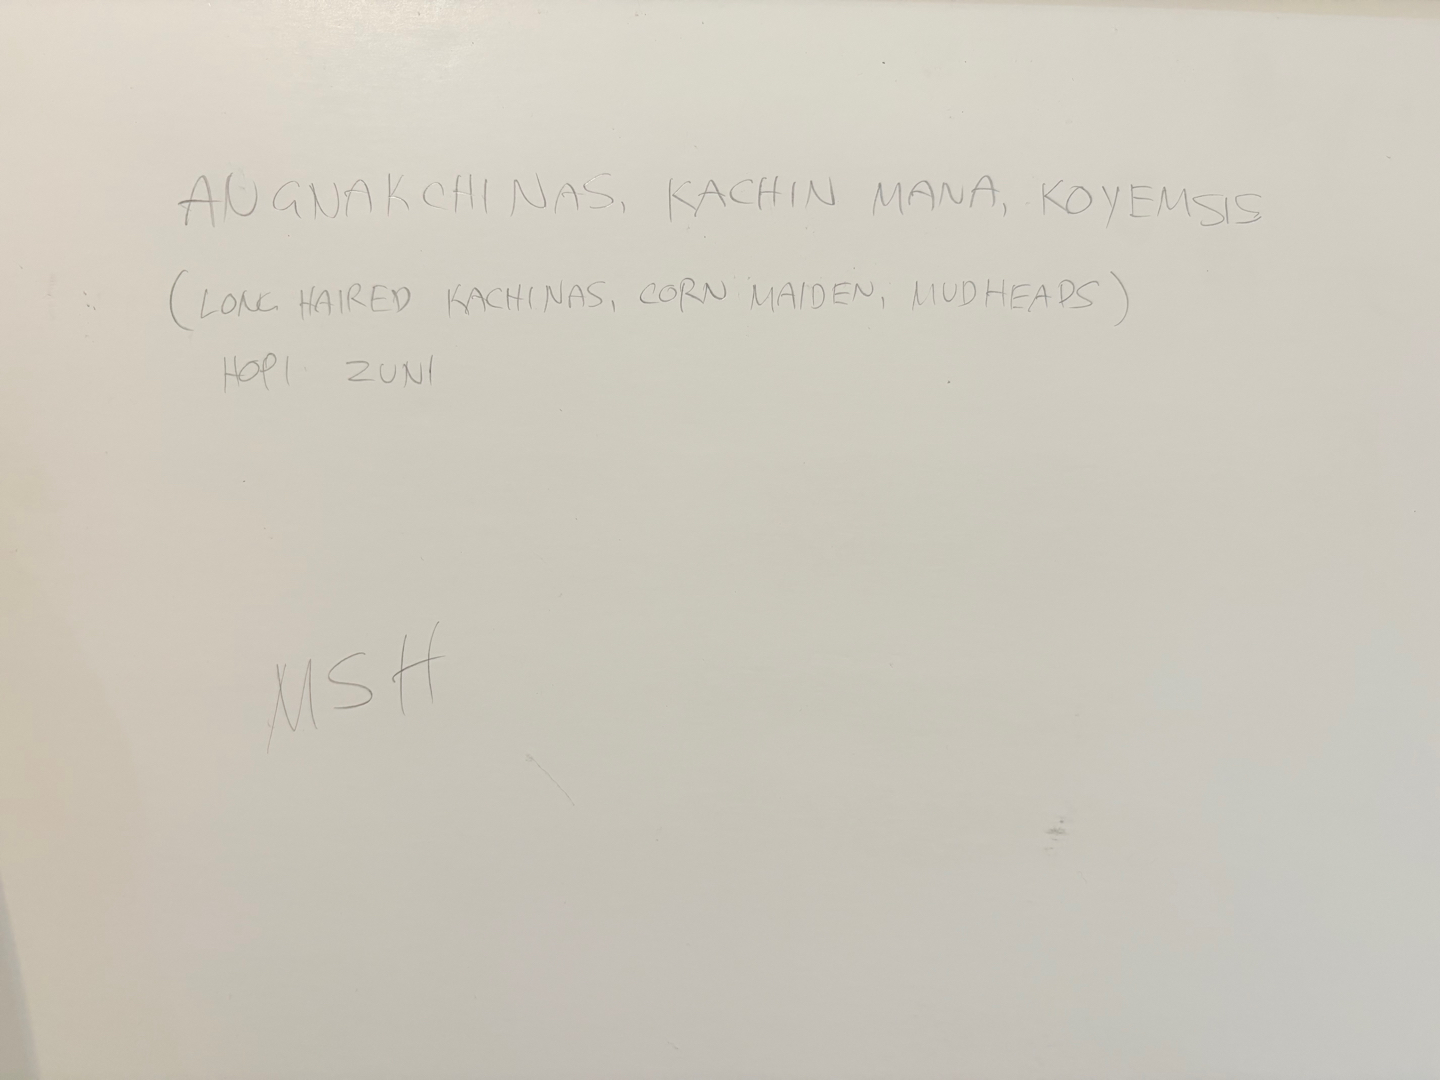 ANGNAKCHINAS, KACHIN MANA, KOYEMSIS
(LONG HAIRED KACHINAS, CORN MAIDEN, MUDHEADS)
HOPI ZUNI
MSH